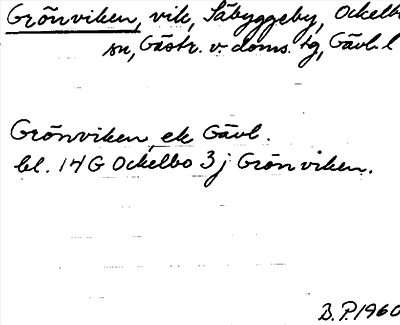 Grönviken, vik, Säbyggeby, Ockelb
sn, Gästr. v. doms. tg, Gävl. l
Grönviken ek Gävl.
bl. 14 G Ockelbo 3 j Grönviken.
B.P. 1960